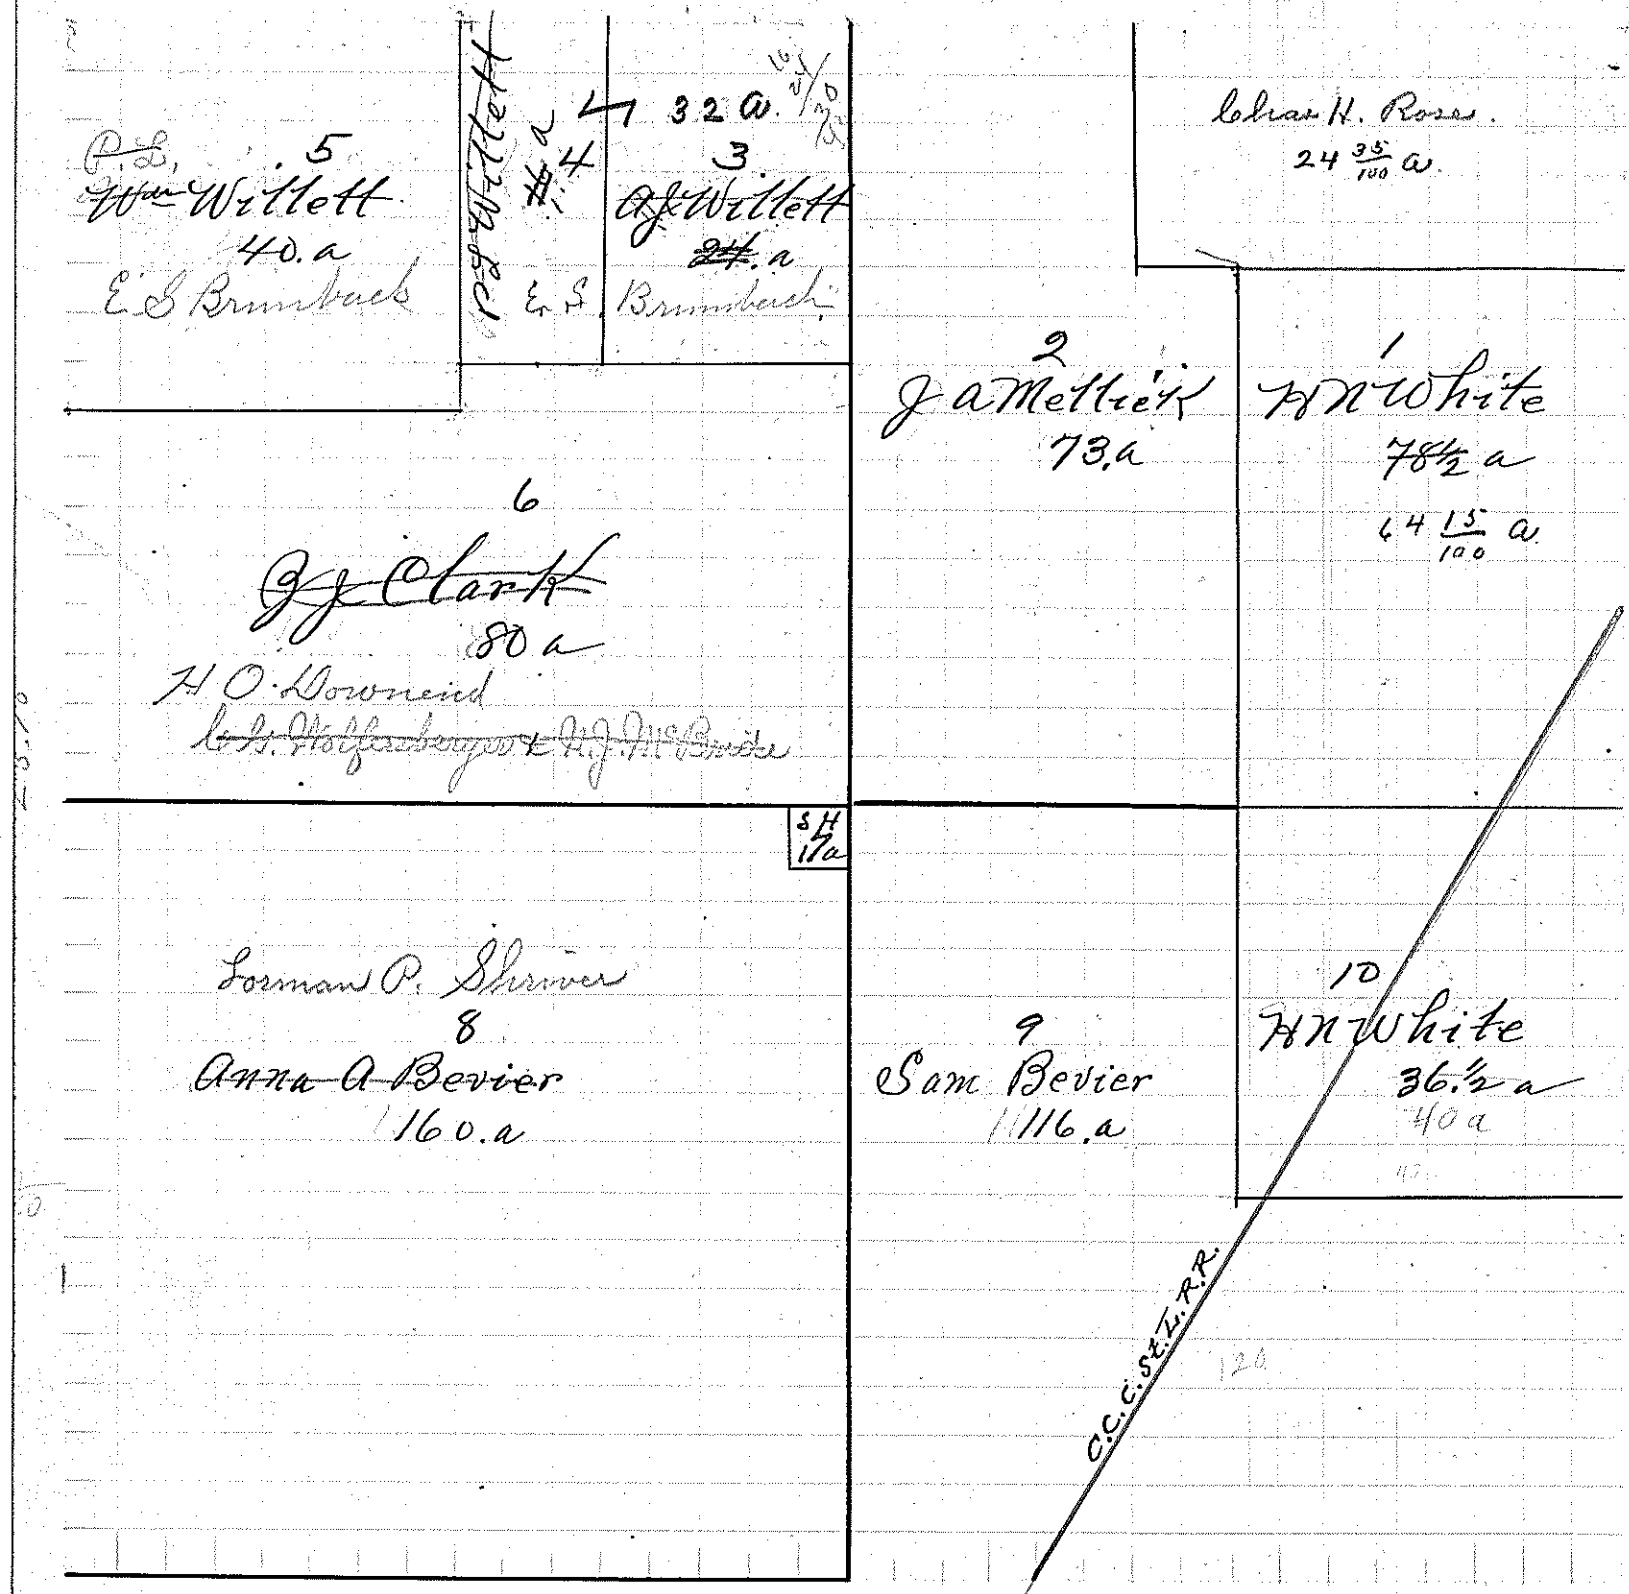 P.L.
. 5
Wm Willett
40.a
E. S Brumback
P L Willett
a
4
E. S.
32 a.
3.
A J Willett
24. a
Brumback
Chas H. Rose.
24 35/100 a.
2
J A Mettick
73.a
1
H N White
78 1/2 a
64 15/100 a.
6
J J Clark
80 a
H O. Downend
C. G. Wolfersberger & H. J. McBride
S H
1/a
Lorman P. Shriver
8
Anna A Bevier
160.a
9
Sam Bevier
116.a
10
H N White
36.1/2 a
40 a
C.C.C. St. L. R.R.
120